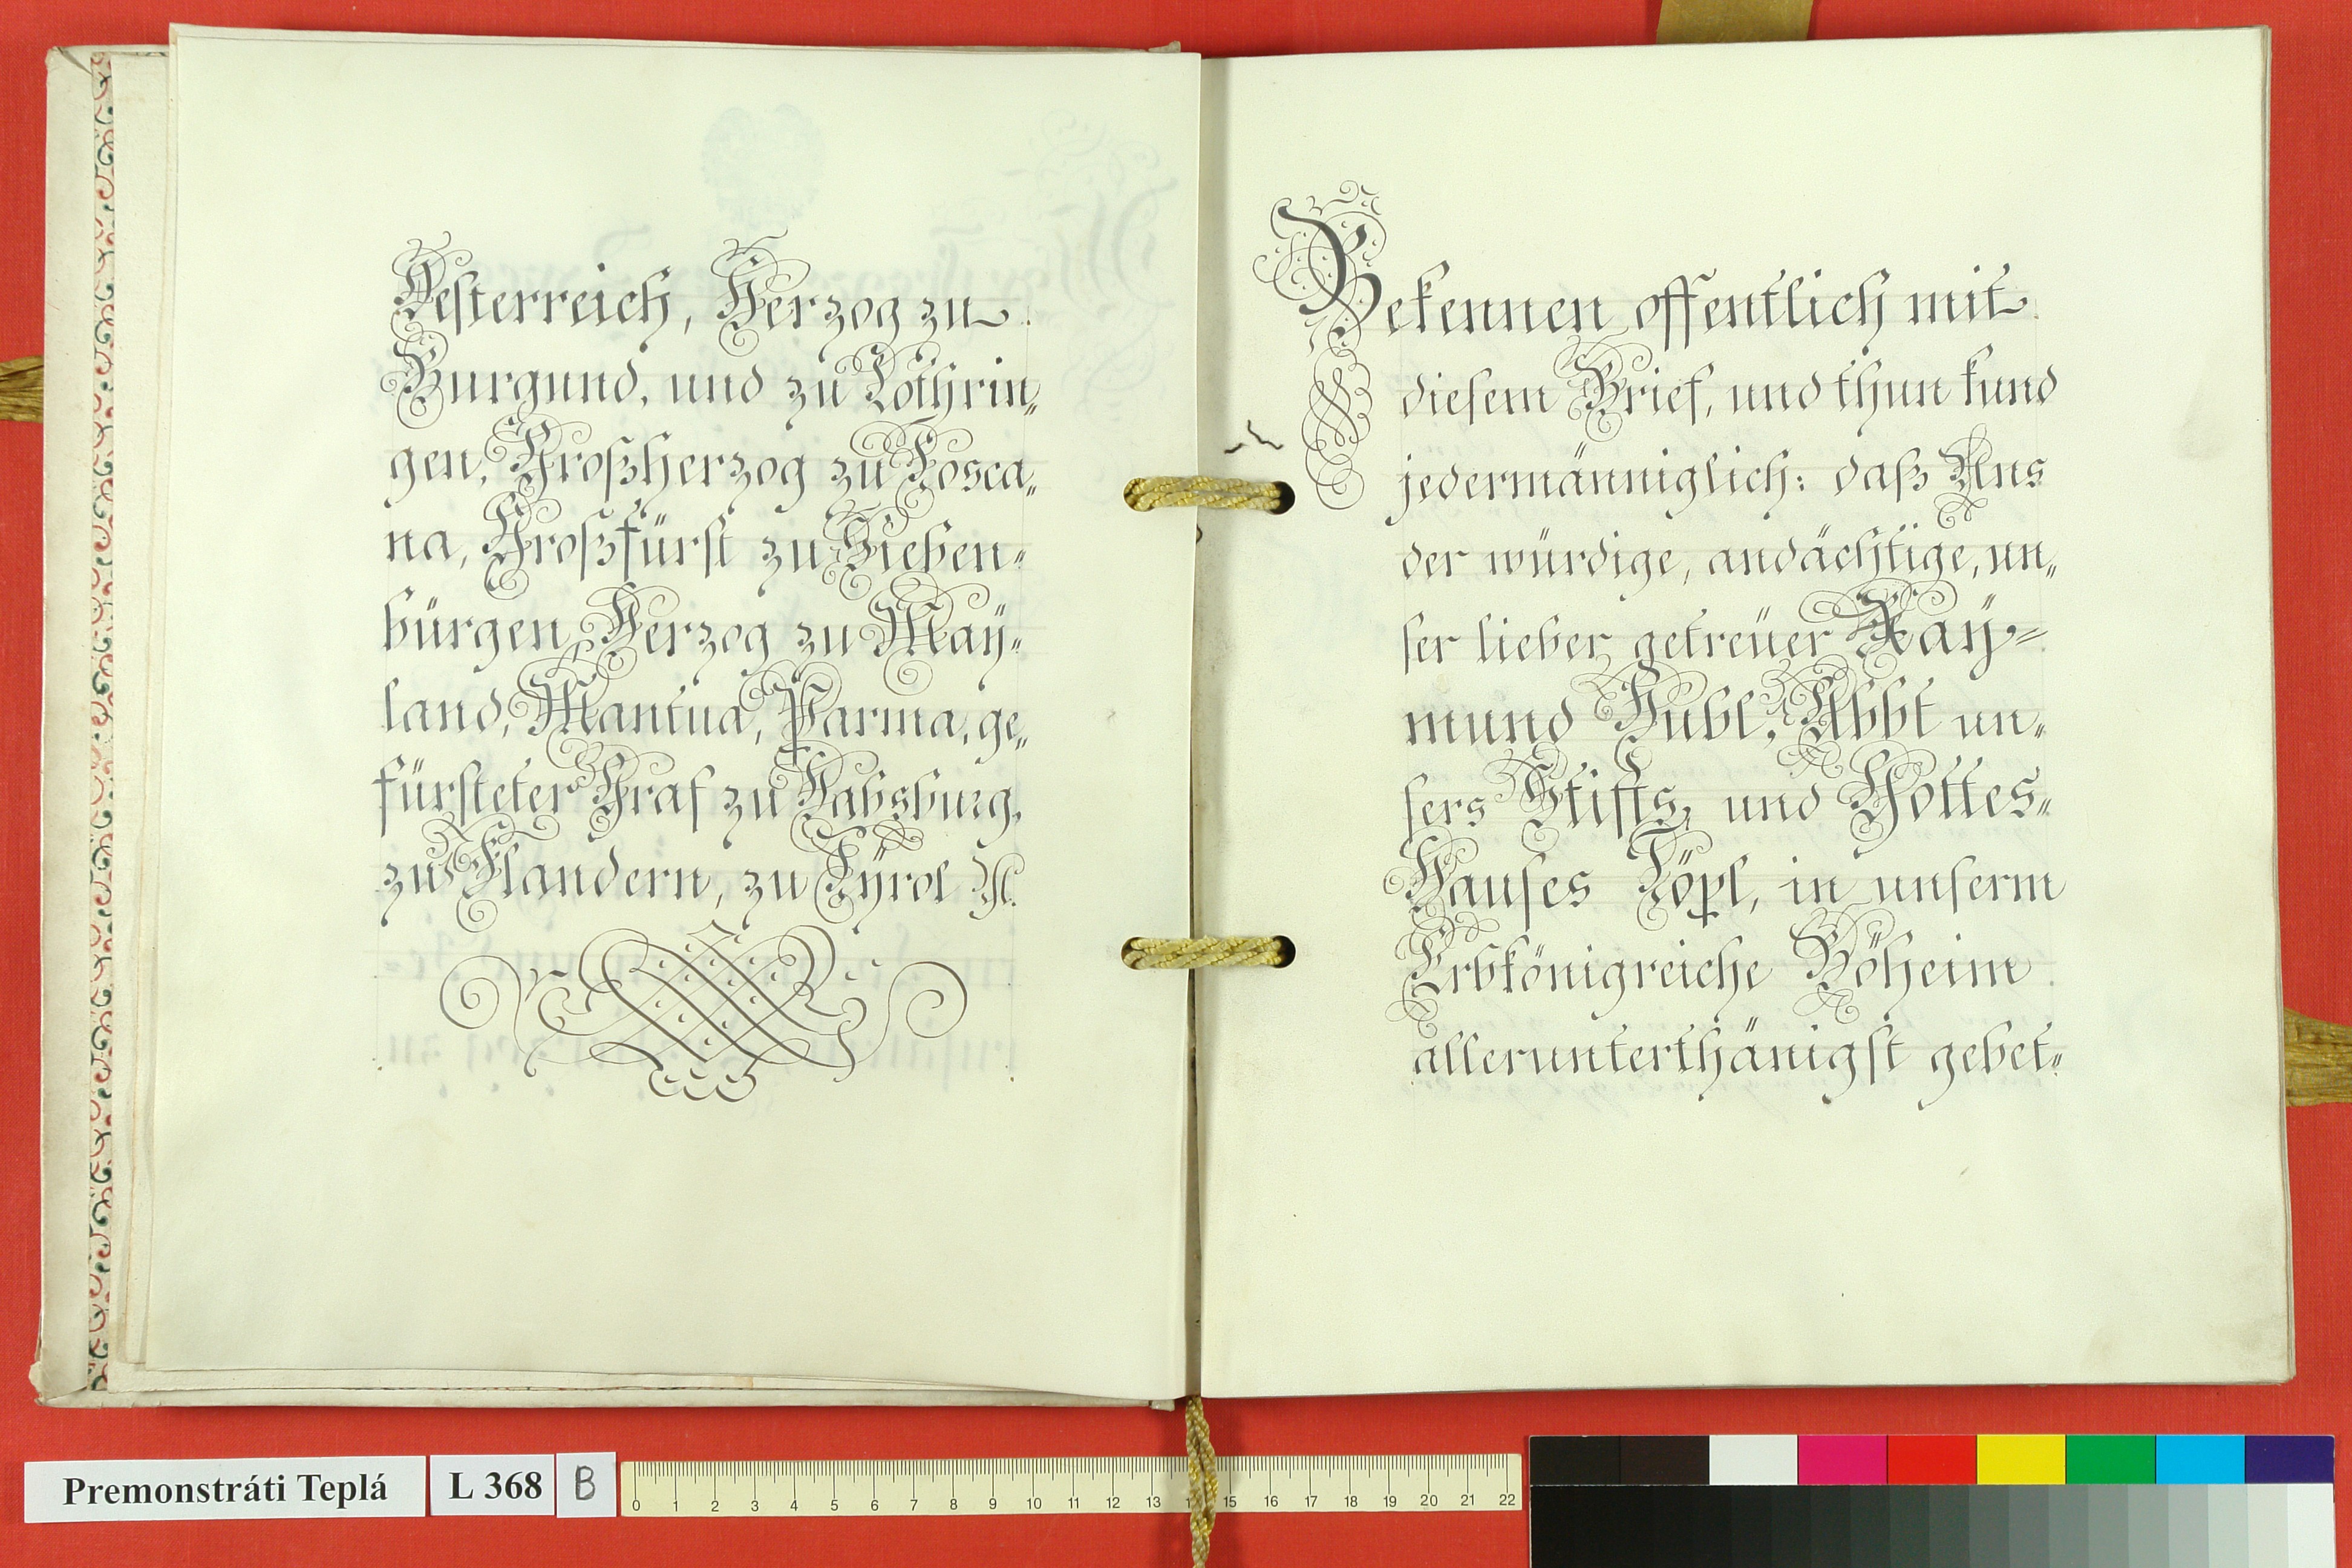 Oesterreich, Herzog zu
Burgund, und zu Lothrin„
gen, Großherzog zu Tosca„
na, Großfürst zu Sieben„
bürgen, Herzog zu Maÿ„
land, Mantua, Parma, ge„
fürsteter Graf zu Habsburg,
zu Flandern, zu Tÿrol ⁊c.
Bekennen offentlich mit
diesem Brief, und thun kund
jedermänniglich: daß Uns
der würdige, andächtige, un„
ser lieber getreüer Raÿ„
mund Hubl, Abbt un„
sers Stifts, und Gottes„
Hauses Töpl, in unserm
Erbkönigreiche Böheim
allerunterthänigst gebet„
Premonstráti Teplá L 368 B
0 1 2 3 4 5 6 7 8 9 10 11 12 13 14 15 16 17 18 19 20 21 22